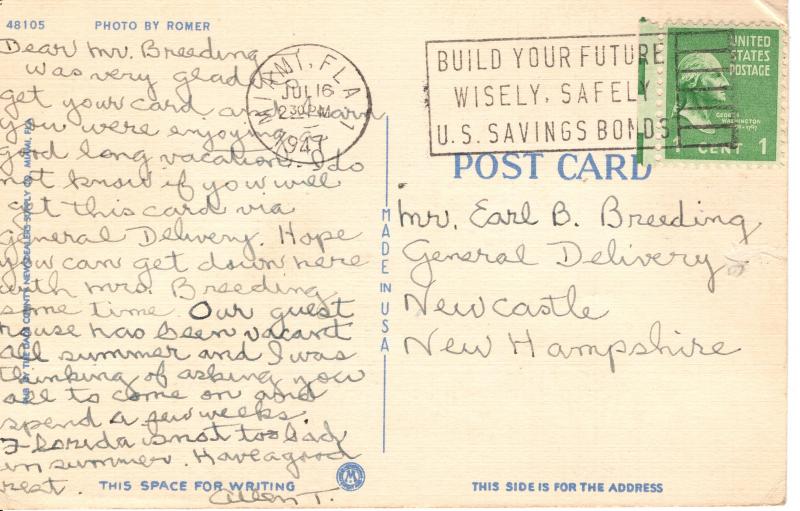 48105 PHOTO BY ROMER
Dear Mr. Breeding
was very glad to
get your card and learn
you were enjoying a
good long vacation. I do
not know if you will
get this card via
General Delivery. Hope
you can get down here
with Mrs. Breeding
some time. Our guest
house has been vacant
all summer and I was
thinking of asking you
all to come on and
spend a few weeks.
Florida is not too bad
in summer. Have a good
rest.
Allen T.
THIS SPACE FOR WRITING
PUB. BY THE DADE COUNTY NEWSDEALERS SUPPLY CO., MIAMI, FLA.
MADE IN USA
MIAMI, FLA. 1
JUL 16
2 30 PM
1947
BUILD YOUR FUTURE
WISELY, SAFELY
U.S. SAVINGS BONDS
UNITED
STATES
POSTAGE
GEORGE
WASHINGTON
1 CENT 1
POST CARD
Mr. Earl B. Breeding
General Delivery
Newcastle
New Hampshire
THIS SIDE IS FOR THE ADDRESS